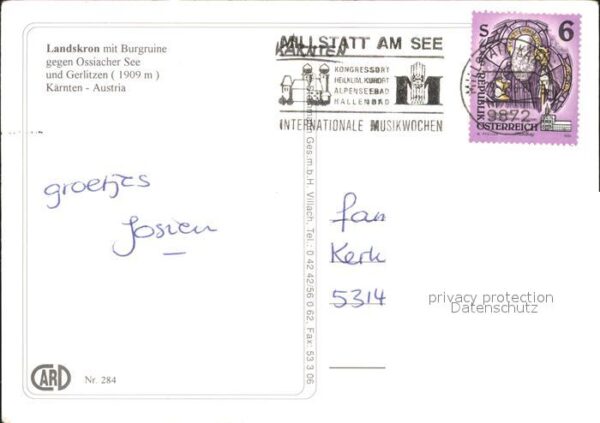 Landskron mit Burgruine
gegen Ossiacher See
und Gerlitzen ( 1909 m )
Kärnten - Austria
MILLSTATT AM SEE
KÄRNTEN
KONGRESSORT
HEILKLIM. KURORT
ALPENSEEBAD
HALLENBAD
M
INTERNATIONALE MUSIKWOCHEN
S 6
REPUBLIK
ÖSTERREICH
9872
groetjes
Josien
Ges.m.b.H. Villach, Tel.: 0 42 42/56 0 62, Fax: 53 3 06
fam
Kerk
5314
privacy protection
Datenschutz
CARD
Nr. 284